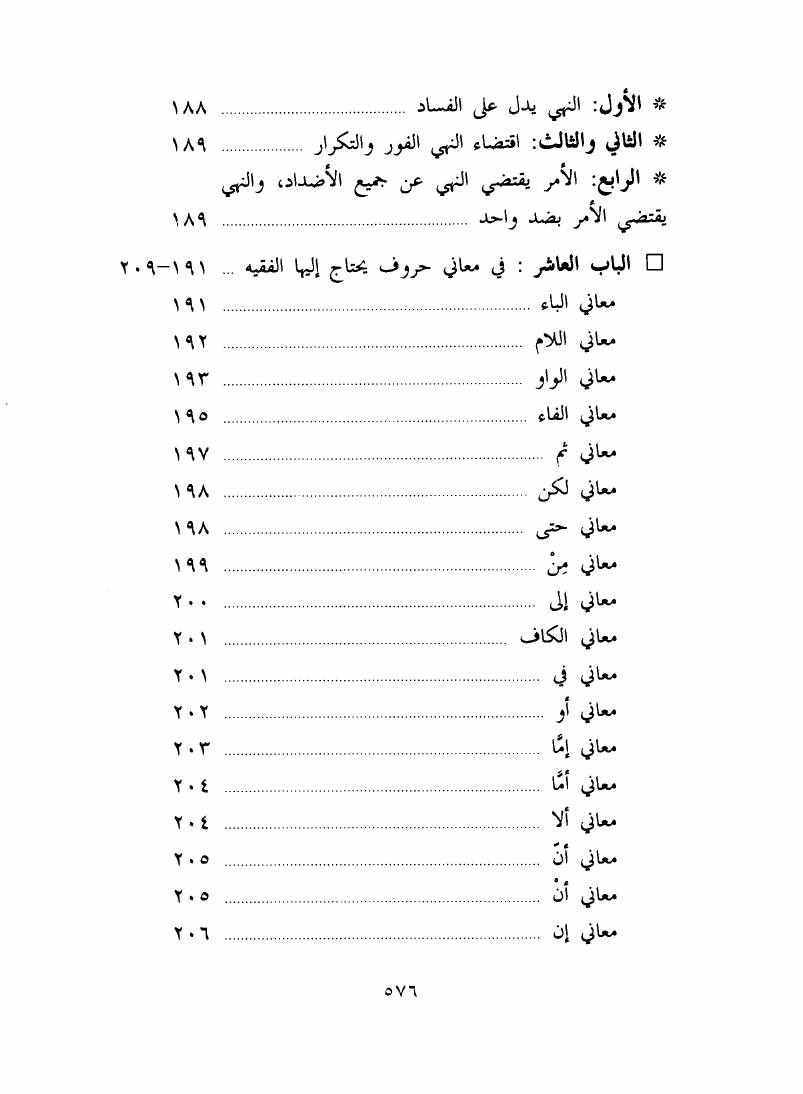 * الأول: النهي يدل على الفساد ........ ١٨٨
* الثاني والثالث: اقتضاء النهي الفور والتكرار ........ ١٨٩
* الرابع: الأمر يقتضي النهي عن جميع الأضداد، والنهي
يقتضي الأمر بضد واحد ........ ١٨٩
□ الباب العاشر : في معاني حروف يحتاج إليها الفقيه ... ١٩١-٢٠٩
معاني الباء ........ ١٩١
معاني اللام ........ ١٩٢
معاني الواو ........ ١٩٣
معاني الفاء ........ ١٩٥
معاني ثم ........ ١٩٧
معاني لكن ........ ١٩٨
معاني حتى ........ ١٩٨
معاني مِنْ ........ ١٩٩
معاني إلى ........ ٢٠٠
معاني الكاف ........ ٢٠١
معاني في ........ ٢٠١
معاني أو ........ ٢٠٢
معاني إمَّا ........ ٢٠٣
معاني أمَّا ........ ٢٠٤
معاني ألا ........ ٢٠٤
معاني أنّ ........ ٢٠٥
معاني أنْ ........ ٢٠٥
معاني إن ........ ٢٠٦
٥٧٦